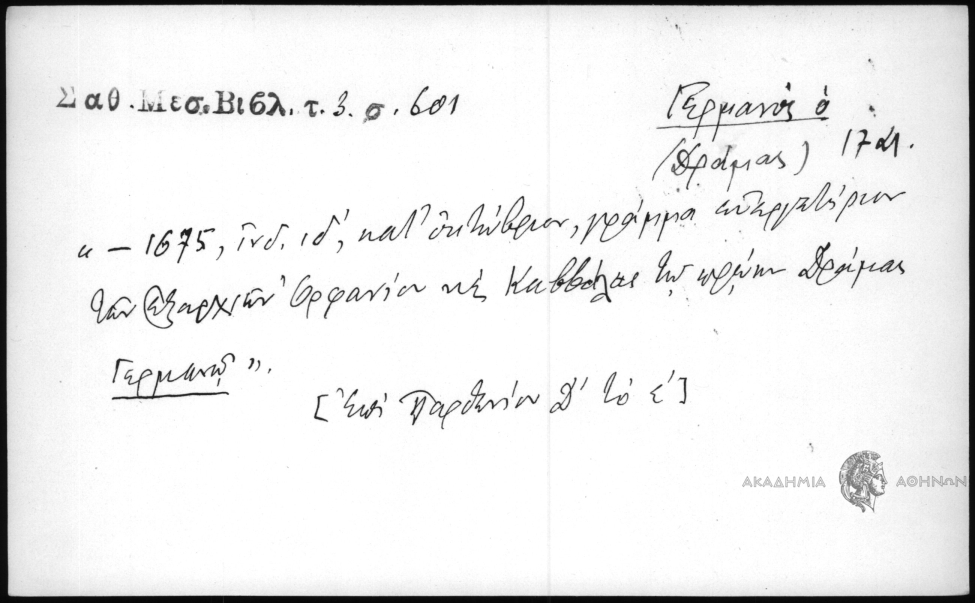 Σαθ. Μεσ. Βιβλ. τ. 3. σ. 601
Γερμανός ὁ
(Δράμας) 17 αἰ.
« – 1675, ἰνδ. ιδ΄, κατ' ὀκτώβριον, γράμμα
τῶν ἐξαρχιῶν Ὀρφανίου κὲ Καββάλας τῷ πρώην Δράμας
Γερμανῷ ».
[Ἐπὶ Παρθενίου Δ΄ τὸ ε΄]
ΑΚΑΔΗΜΙΑ ΑΘΗΝΩΝ